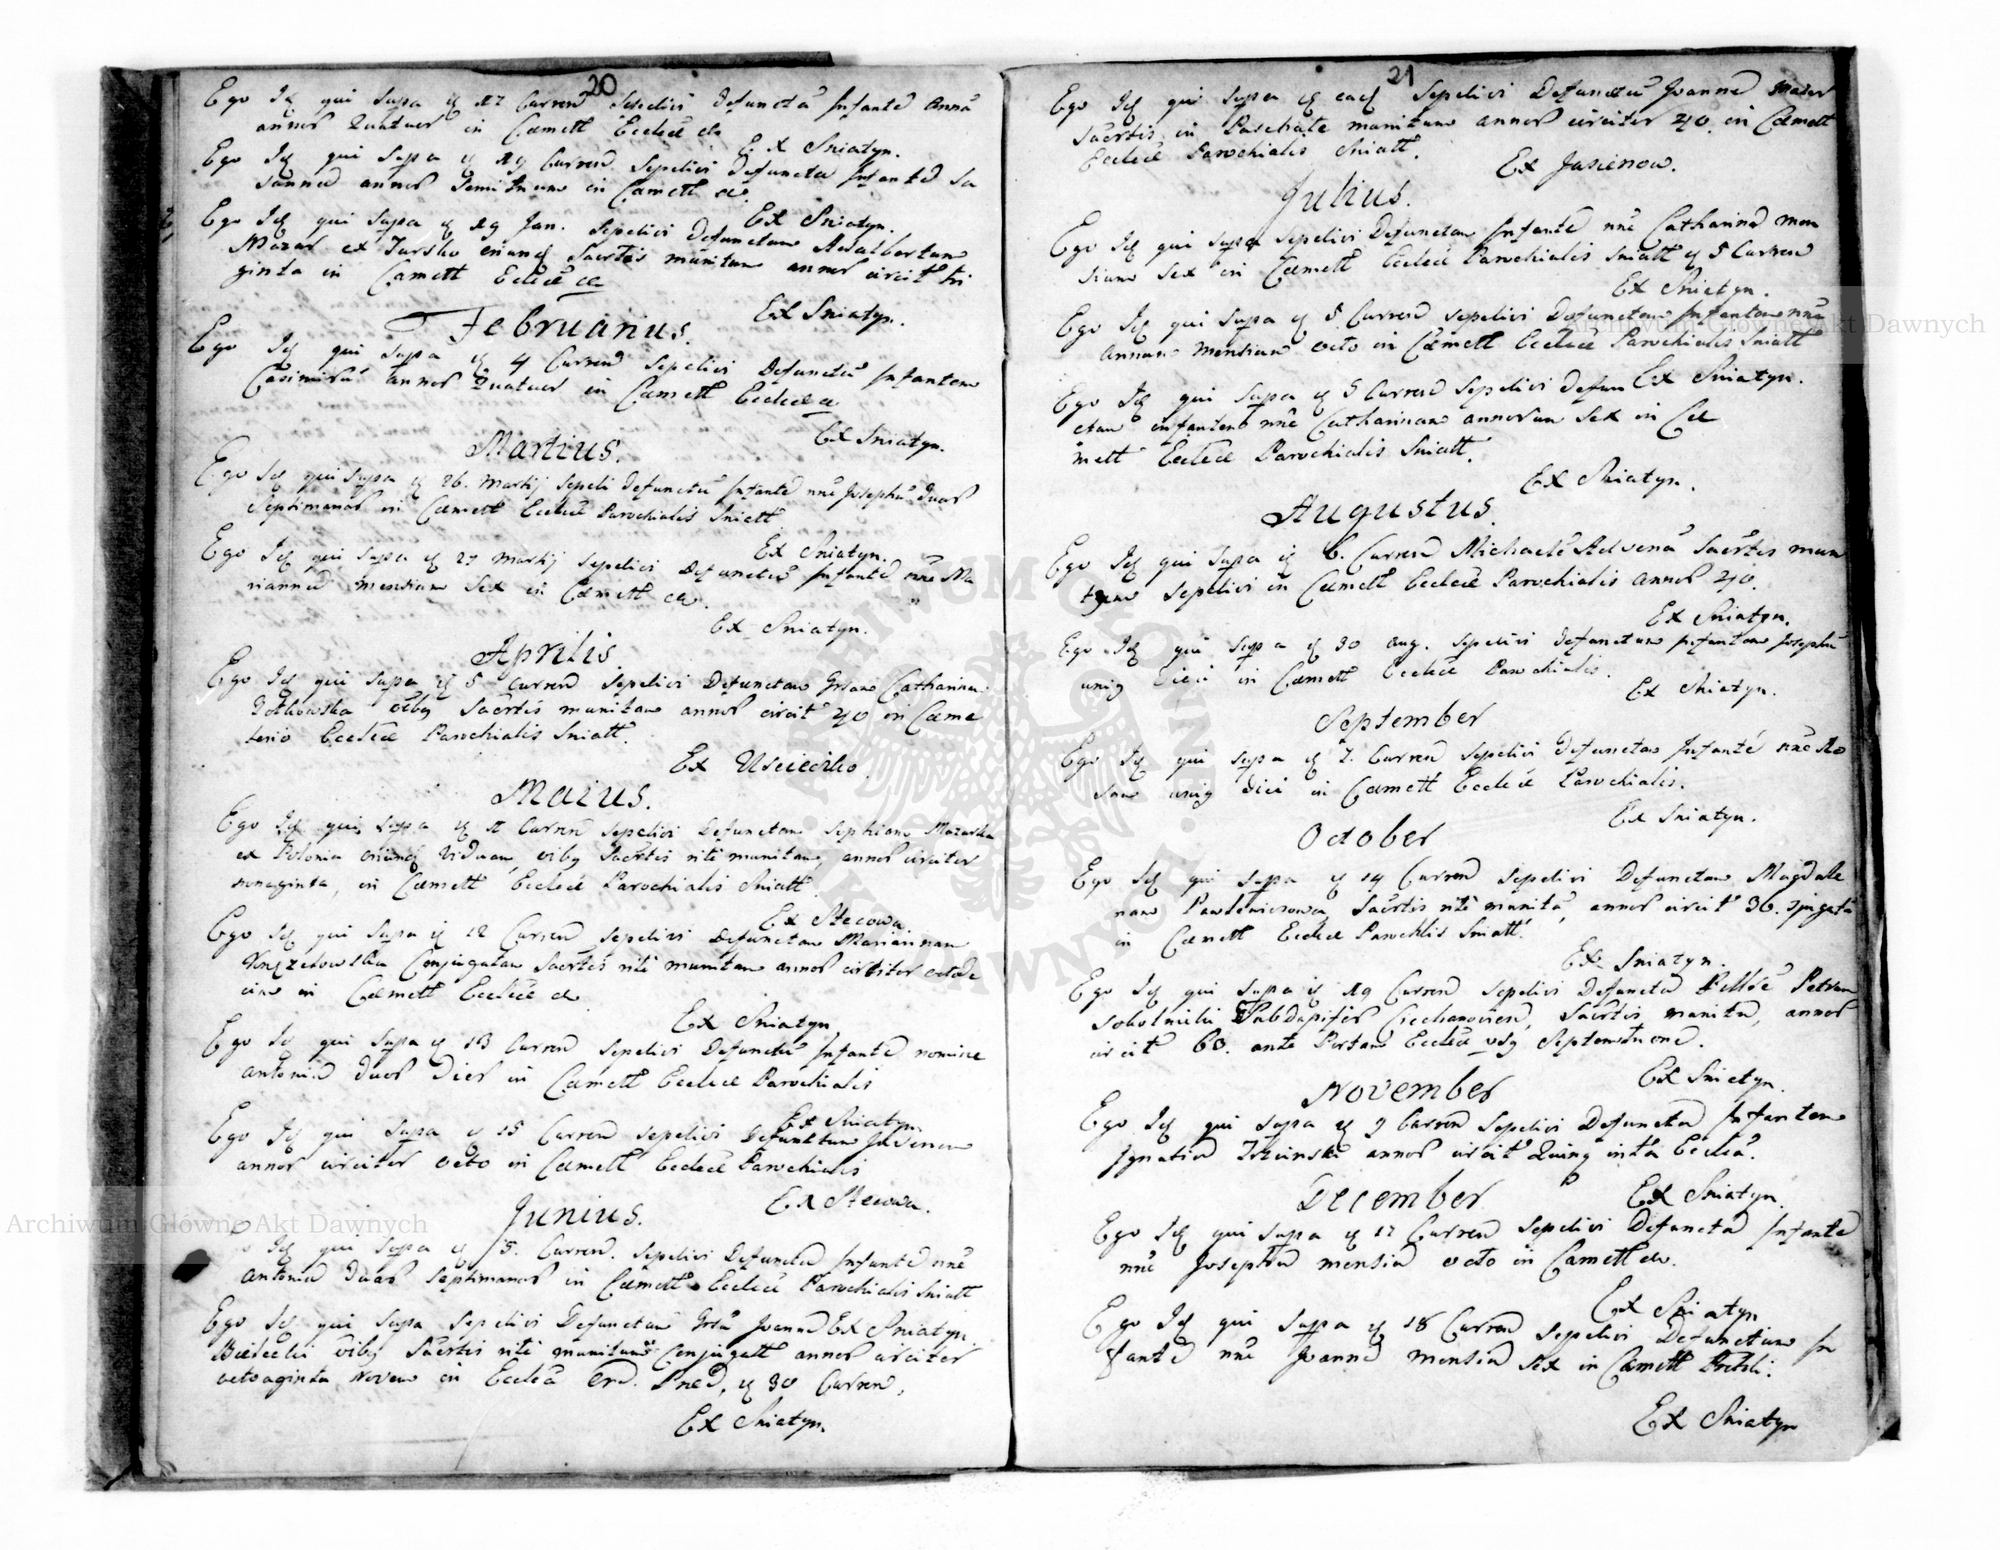 20
Ego Id qui supa d 27 Curren Sepelivi defunctā Infante Annā
annor Quatuor in Cæmett Ecclae &c
Ex Sniatyn.
Ego Id qui supa d 29 Curren. Sepelivi defuncta Infante Su
sanna annor in Cæmett &c.
Ex Sniatyn.
Ego Id qui supa d 29 Jan. Sepelivi Defunctum Adalbertum
Mazur ex Sacrtis munitum annor circit tri
ginta in Cæmett Ecclae &c
Ex Sniatyn.
Februarius.
Ego Id qui supa d 4 Curren Sepelivi Defunctū Infantem
Casimirū annor Quatuor in Cæmett Ecclae &c
Ex Sniatyn.
Martius.
Ego Id qui supa d 26. Martij Sepeli defunctū Infante nne Josephū duar
Septimanar in Cæmett Ecclae Parochialis Sniatt
Ex Sniatyn.
Ego Id qui supa d 27 Martij Sepelivi Defunctū Infante nne Ma
rianna mensium Sex in Cæmett &c.
Ex Sniatyn.
Aprilis.
Ego Id qui supa d 5 Curren Sepelivi Defunctam Catharinam
oibq Sacrtis munitam annor circit 40 in Cæme
terio Ecclae Parochialis Sniatt.
Ex Uscieczko.
Maius.
Ego Id qui supa d Curren Sepelivi Defunctam Sophiam Mazurka
ex Polonia Viduam, oibq Sacrtis rite munitam, annor circiter
nonaginta, in Cæmett Ecclae Parochialis Sniatt.
Ex Stecowa
Ego Id qui supa d 12 Curren Sepelivi Defunctam Mariannam
Conjugatam Sacrtis rite munitam annor circiter octode
cim in Cæmett Ecclae &c
Ex Sniatyn.
Ego Id qui supa d 13 Curren Sepelivi Defunctū Infante nomine
Antoniu duor Dier in Cæmett Ecclae Parochialis
Ex Sniatyn.
Ego Id qui supa d 15 Curren Sepelivi Defunctum Juvenem
annor circiter octo in Cæmett Ecclae Parochialis
Ex Stecowa.
Junius.
Id qui supa d 5. Curren. Sepelivi Defuncta Infante nne
Antoniu duar Septimanar in Cæmett Ecclae Parochialis Sniatt
Ex Sniatyn.
Ego Id qui supa Sepelivi Defunctum Joanne
oibq Sacrtis rite munitum Conjugatt annor circiter
octoaginta Novem in Ecclā Ord. Præd, d 30 Curren,
Ex Sniatyn.
21
Ego Id qui supa d ead Sepelivi Defunctū Joanne Mazur
Sacrtis in Paschate munitum annor circiter 40 in Cæmett
Ecclae Parochialis Sniatt.
Ex Jasienow.
Julius.
Ego Id qui supa Sepelivi Defunctam Infante nne Catharina men
sium Sex in Cæmett Ecclae Parochialis Sniatt d 5 Curren
Ex Sniatyn.
Ego Id qui supa d 5 Curren Sepelivi Defunctam Infantem nne
Annam Mensium octo in Cæmett Ecclae Parochialis Sniatt
Ex Sniatyn.
Ego Id qui supa d 5 Curren Sepelivi defun
ctam infantem nne Catharinam annorum Sex in Cæ
mett Ecclae Parochialis Sniatt.
Ex Sniatyn.
Augustus.
Ego Id qui supa d 6. Curren Michaelē Advenā Sacrtis muni
tum Sepelivi in Cæmett Ecclae Parochialis annor 40.
Ex Sniatyn.
Ego Id qui supa d 30 Aug. Sepelivi defunctum Infantem Josephū
uniq Diei in Cæmett Ecclae Parochialis.
Ex Sniatyn.
September
Ego Id qui supa d 7. Curren Sepelivi Defunctam Infante nne Ro
sam uniq Diei in Cæmett Ecclae Parochialis.
Ex Sniatyn.
October
Ego Id qui supa d 14 Curren Sepelivi Defunctam Magdale
nam Sacrtis rite munitā, annor circit 36.
in Cæmett Ecclae Parochlis Sniatt.
Ex Sniatyn.
Ego Id qui supa d 29 Curren Sepelivi Defunctu Petrum
Sokolnicki Subdapifer Ciechanovien, Sacrtis munitu, annor
circit 60. ante Portam Ecclae Septemtrione.
Ex Sniatyn.
November
Ego Id qui supa d 9 Curren Sepelivi Defunctu Infantem
Ignatiu annor circit Quinq intā Ecclā.
Ex Sniatyn.
December
Ego Id qui supa d 17 Curren Sepelivi Defuncta Infante
nne Josepha mensiu octo in Cæmett &c.
Ex Sniatyn
Ego Id qui supa d 18 Curren Sepelivi Defunctum In
fante nne Joanne mensiu Sex in Cæmett
Ex Sniatyn
Archiwum Główne Akt Dawnych
Archiwum Główne Akt Dawnych
ARCHIWUM GŁÓWNE AKT DAWNYCH